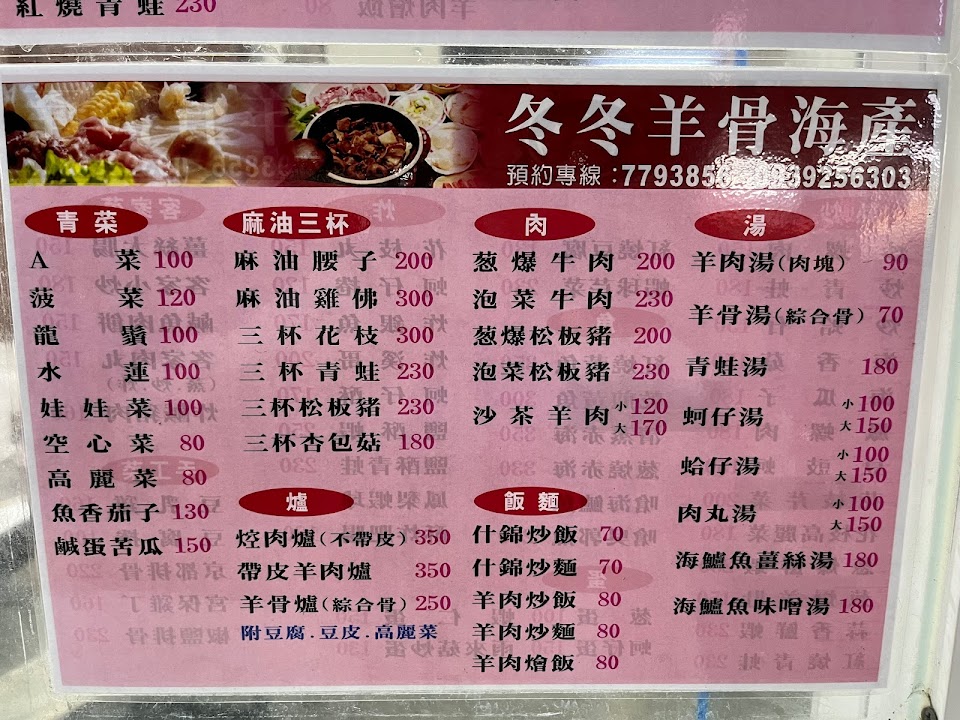 紅燒青蛙 230
羊肉燴飯 80
冬冬羊骨海產
預約專線：7793856 0939256303
青菜
A菜 100
菠菜 120
龍鬚 100
水蓮 100
娃娃菜 100
空心菜 80
高麗菜 80
魚香茄子 130
鹹蛋苦瓜 150
麻油三杯
麻油腰子 200
麻油雞佛 300
三杯花枝 300
三杯青蛙 230
三杯松板豬 230
三杯杏包菇 180
爐
焢肉爐(不帶皮) 350
帶皮羊肉爐 350
羊骨爐(綜合骨) 250
附豆腐.豆皮.高麗菜
肉
葱爆牛肉 200
泡菜牛肉 230
葱爆松板豬 200
泡菜松板豬 230
沙茶羊肉 小120 大170
飯麵
什錦炒飯 70
什錦炒麵 70
羊肉炒飯 80
羊肉炒麵 80
羊肉燴飯 80
湯
羊肉湯(肉塊) 90
羊骨湯(綜合骨) 70
青蛙湯 180
蚵仔湯 小100 大150
蛤仔湯 小100 大150
肉丸湯 小100 大150
海鱸魚薑絲湯 180
海鱸魚味噌湯 180